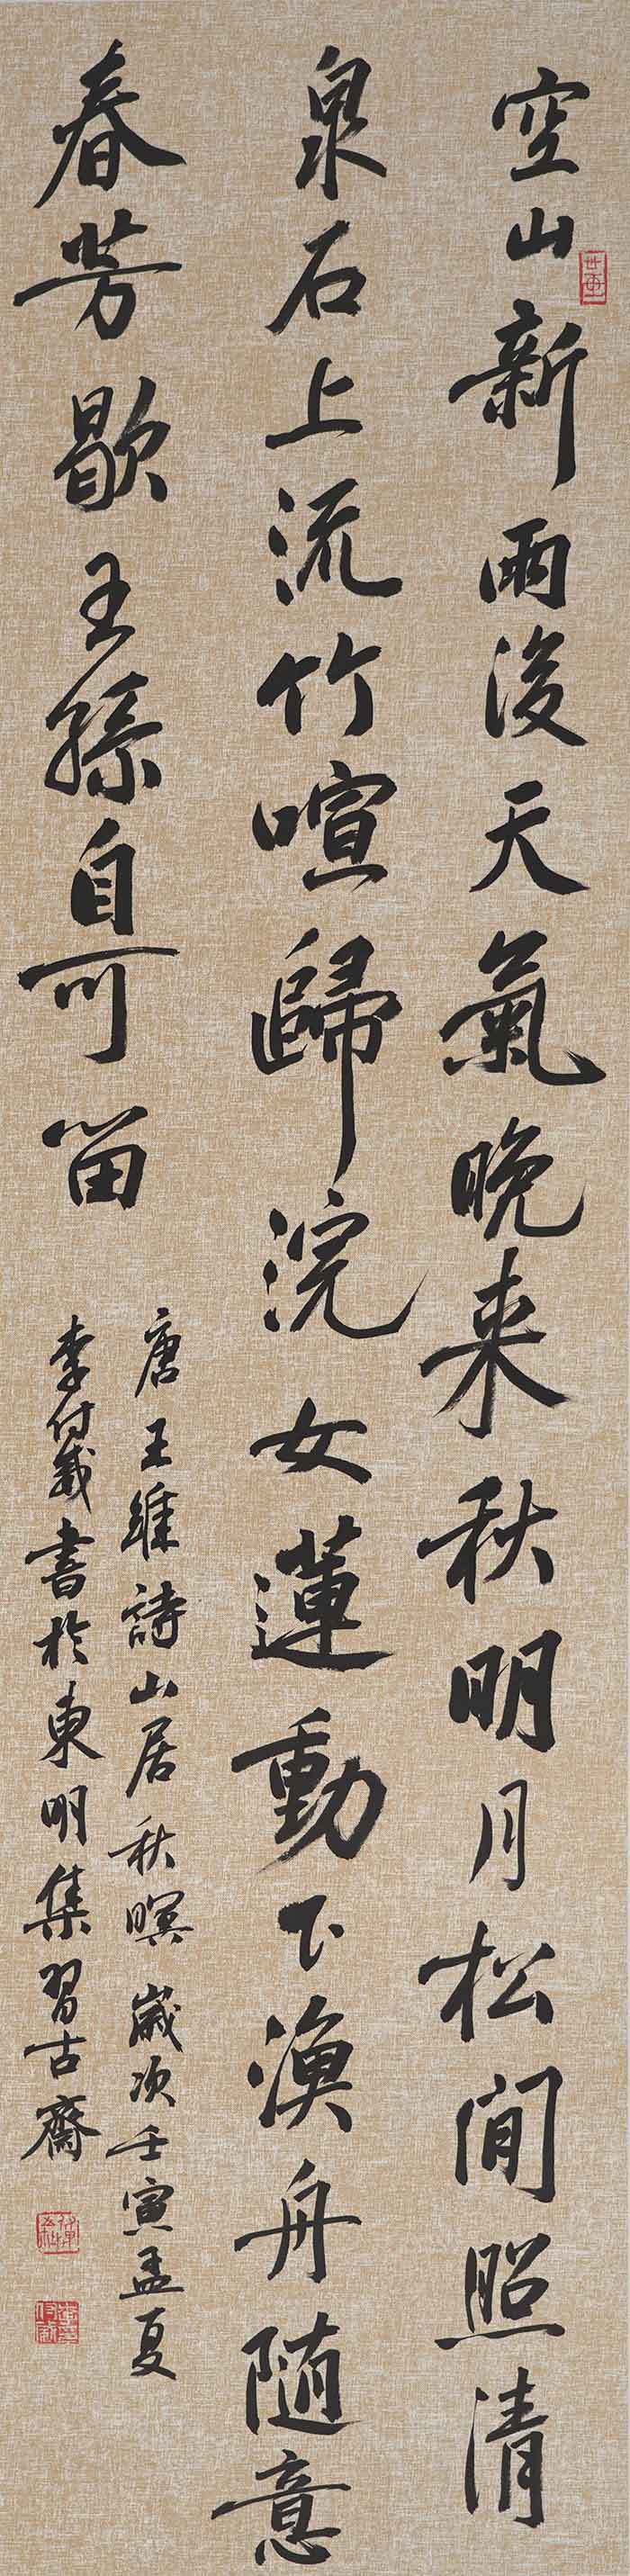 空山新雨後天氣晚来秋明月松間照清
泉石上流竹喧歸浣女蓮動下漁舟随意
春芳歇王孫自可留
唐王維詩山居秋暝歲次壬寅孟夏
李付書於東明集習古齋